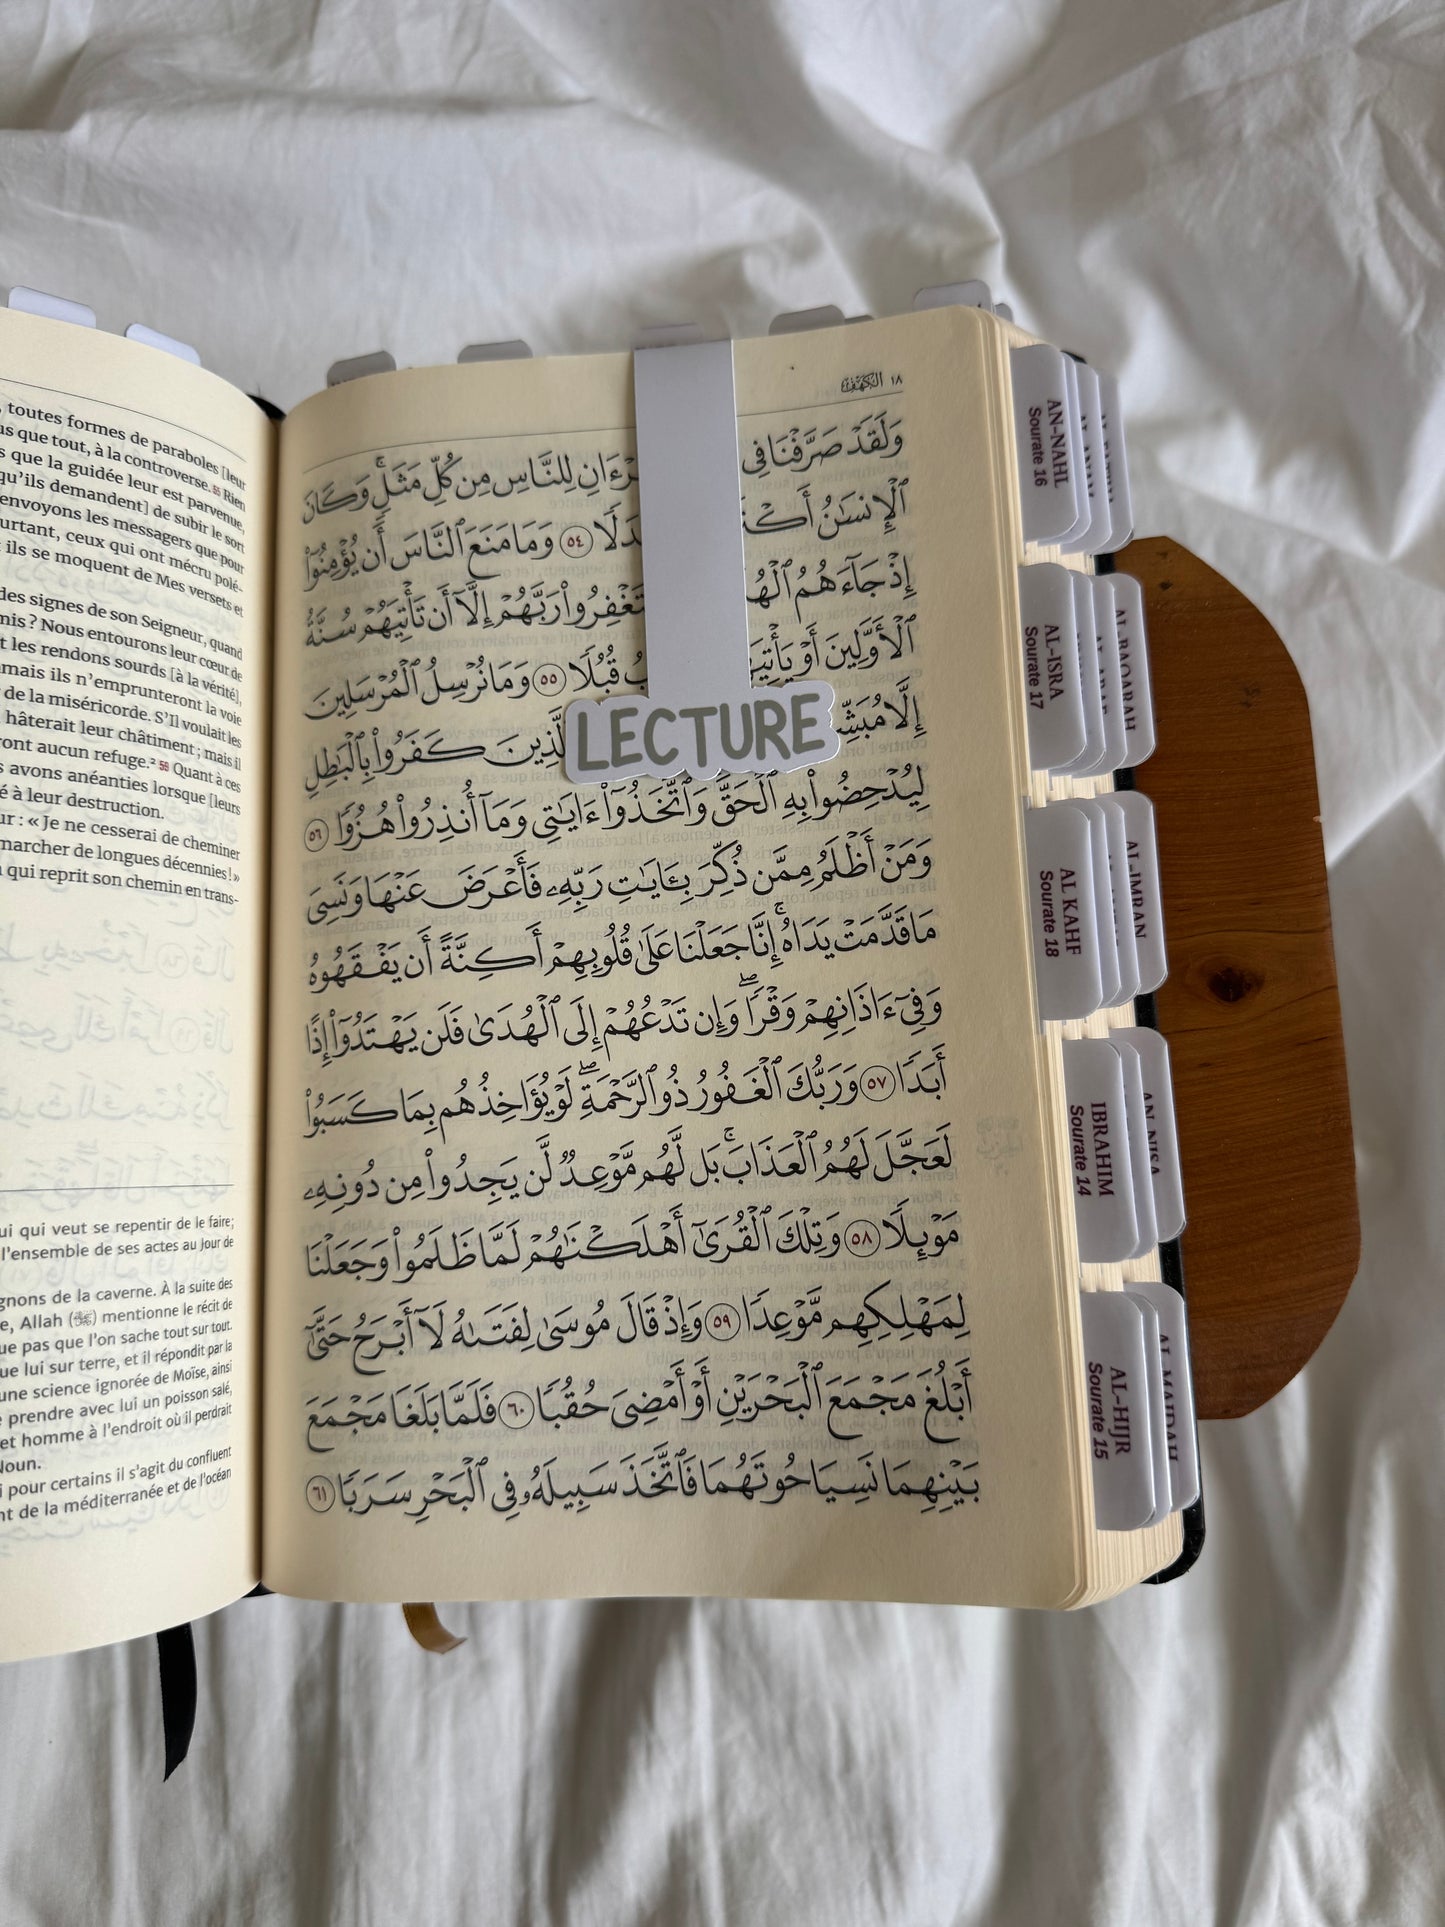 , toutes formes de paraboles [leur
us que tout, à la controverse. 55 Rien
s que la guidée leur est parvenue,
qu'ils demandent] de subir le sort
envoyons les messagers que pour
urtant, ceux qui ont mécru polé-
t ils se moquent de Mes versets et
des signes de son Seigneur, quand
mis ? Nous entourons leur cœur de
t les rendons sourds [à la vérité],
mais ils n'emprunteront la voie
r de la miséricorde. S'Il voulait les
hâterait leur châtiment ; mais il
ront aucun refuge.² 59 Quant à ces
s avons anéanties lorsque [leurs
é à leur destruction.
ur : « Je ne cesserai de cheminer
marcher de longues décennies ! »
qui reprit son chemin en trans-
ui qui veut se repentir de le faire;
l'ensemble de ses actes au Jour de
gnons de la caverne. À la suite des
e, Allah (ﷺ) mentionne le récit de
ue pas que l'on sache tout sur tout.
ue lui sur terre, et il répondit par la
une science ignorée de Moïse, ainsi
e prendre avec lui un poisson salé,
et homme à l'endroit où il perdrait
Noun.
i pour certains il s'agit du confluent
nt de la méditerranée et de l'océan
١٨ الكهف
وَلَقَدْ صَرَّفْنَا فِي رْءَانِ لِلنَّاسِ مِن كُلِّ مَثَلٍ ۚ وَكَانَ
ٱلْإِنسَٰنُ أَكْثَ دَلًا ٥٤ وَمَا مَنَعَ ٱلنَّاسَ أَن يُؤْمِنُوٓا۟
إِذْ جَآءَهُمُ ٱلْهُ تَغْفِرُوا۟ رَبَّهُمْ إِلَّآ أَن تَأْتِيَهُمْ سُنَّةُ
ٱلْأَوَّلِينَ أَوْ يَأْتِيَهُ بُ قُبُلًا ٥٥ وَمَا نُرْسِلُ ٱلْمُرْسَلِينَ
إِلَّا مُبَشِّ لَّذِينَ كَفَرُوا۟ بِٱلْبَٰطِلِ
LECTURE
لِيُدْحِضُوا۟ بِهِ ٱلْحَقَّ ۖ وَٱتَّخَذُوٓا۟ ءَايَٰتِى وَمَآ أُنذِرُوا۟ هُزُوًا ٥٦
وَمَنْ أَظْلَمُ مِمَّن ذُكِّرَ بِـَٔايَٰتِ رَبِّهِۦ فَأَعْرَضَ عَنْهَا وَنَسِىَ
مَا قَدَّمَتْ يَدَاهُ ۚ إِنَّا جَعَلْنَا عَلَىٰ قُلُوبِهِمْ أَكِنَّةً أَن يَفْقَهُوهُ
وَفِىٓ ءَاذَانِهِمْ وَقْرًا ۖ وَإِن تَدْعُهُمْ إِلَى ٱلْهُدَىٰ فَلَن يَهْتَدُوٓا۟ إِذًا
أَبَدًا ٥٧ وَرَبُّكَ ٱلْغَفُورُ ذُو ٱلرَّحْمَةِ ۖ لَوْ يُؤَاخِذُهُم بِمَا كَسَبُوا۟
لَعَجَّلَ لَهُمُ ٱلْعَذَابَ ۚ بَل لَّهُم مَّوْعِدٌ لَّن يَجِدُوا۟ مِن دُونِهِۦ
مَوْئِلًا ٥٨ وَتِلْكَ ٱلْقُرَىٰٓ أَهْلَكْنَٰهُمْ لَمَّا ظَلَمُوا۟ وَجَعَلْنَا
لِمَهْلِكِهِم مَّوْعِدًا ٥٩ وَإِذْ قَالَ مُوسَىٰ لِفَتَىٰهُ لَآ أَبْرَحُ حَتَّىٰٓ
أَبْلُغَ مَجْمَعَ ٱلْبَحْرَيْنِ أَوْ أَمْضِىَ حُقُبًا ٦٠ فَلَمَّا بَلَغَا مَجْمَعَ
بَيْنِهِمَا نَسِيَا حُوتَهُمَا فَٱتَّخَذَ سَبِيلَهُۥ فِى ٱلْبَحْرِ سَرَبًا ٦١
AN-NAHL
Sourate 16
AL-ISRA
Sourate 17
AL-BAQARAH
AL KAHF
Sourate 18
AL-IMRAN
IBRAHIM
Sourate 14
AN-NISA
AL-HIJR
Sourate 15
AL-MAIDAH